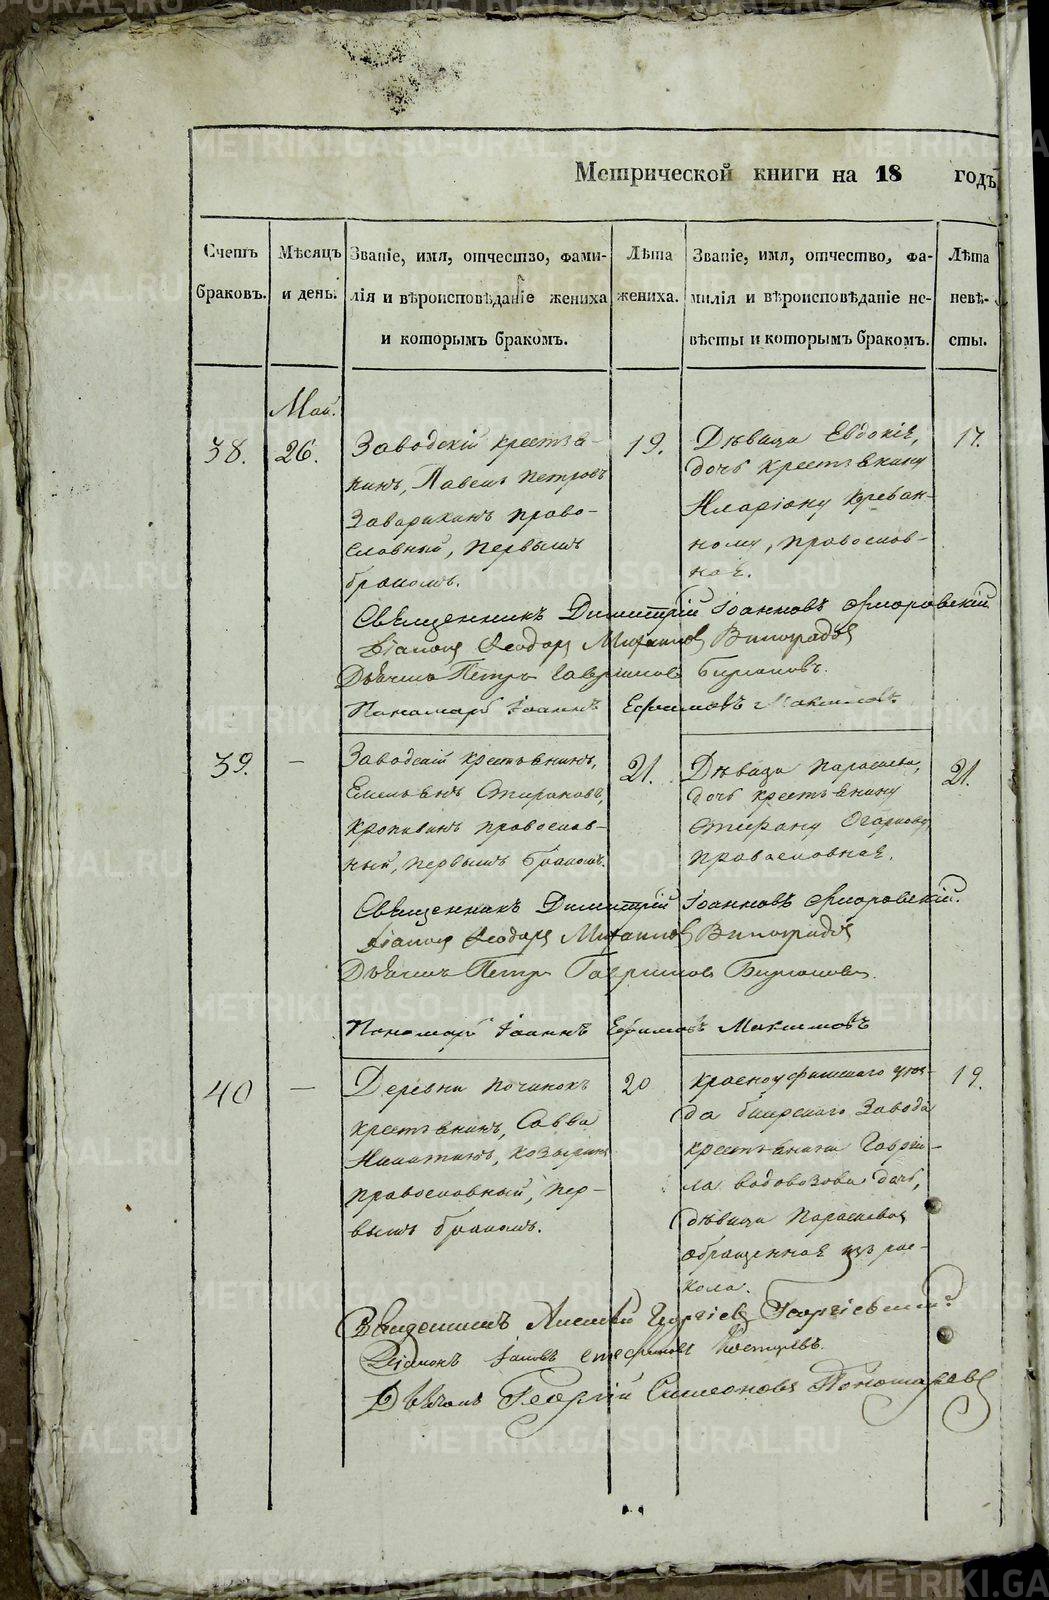 Метрической книги на 18 годъ
Счетъ браковъ.
Мѣсяцъ и день.
Званіе, имя, отчество, фами-
лія и вѣроисповѣданіе жениха
и которымъ бракомъ.
Лѣта
жениха.
Званіе, имя, отчество, фа-
милія и вѣроисповѣданіе не-
вѣсты и которымъ бракомъ.
Лѣта
невѣ-
сты.
Май.
38.
26.
Заводскій крестья-
нинъ, Павелъ Петровъ
право-
славный, первымъ
бракомъ.
19.
Дѣвица Евдокія,
дочь крестьянину
Иларіону
православ-
ная.
17.
Священникъ Димитрій Іоанновъ Флоровскій
Діаконъ Ѳеодоръ Михаиловъ Виноградовъ
Дьячекъ Петръ Гавриловъ
Пономарь Іоаннъ Ефимовъ Максимовъ
39.
—
Заводскій крестьянинъ,
Емельянъ Стефановъ,
Кропивинъ православ-
ный, первымъ бракомъ.
21.
Дѣвица Параскева,
дочь крестьянину
Стефану Огаркову,
православная.
21.
Священникъ Димитрій Іоанновъ Флоровскій.
Діаконъ Ѳеодоръ Михаиловъ Виноградовъ
Дьячекъ Петръ Гавриловъ
Пономарь Іоаннъ Ефимовъ Максимовъ
40
—
Деревни Починокъ
крестьянинъ, Савва
Никитинъ, Козыринъ
православный, пер-
вымъ бракомъ.
20
Красноуфимскаго уѣз-
да Бисерскаго завода
крестьянина Гаврі-
ла Водовозова дочь,
дѣвица Параскева
обращенная изъ рас-
кола.
19.
Священникъ Алексѣй Георгіевъ Георгіевскій
Діаконъ Іаковъ Стефановъ Костыревъ.
Дьячекъ Георгій Симеоновъ Пономаревъ
METRIKI.GASO-URAL.RU